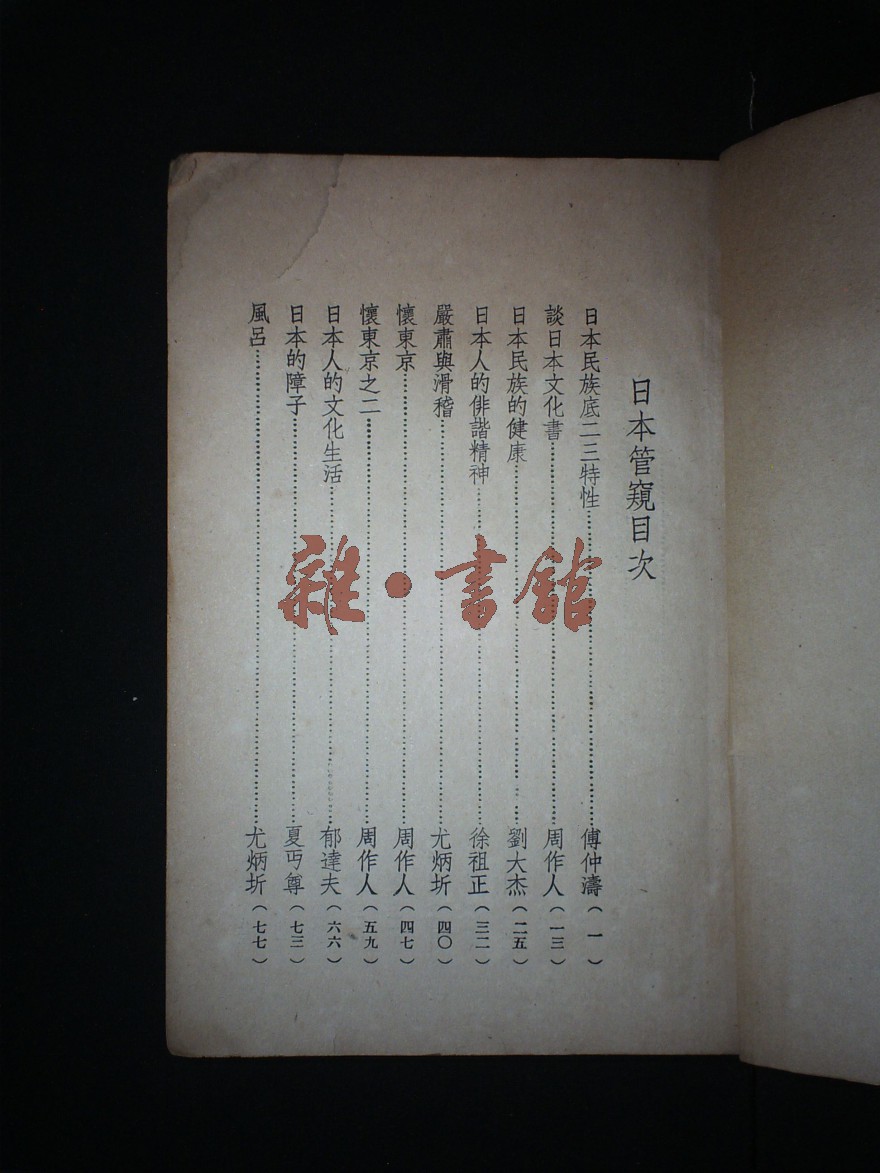 日本管窺目次
日本民族底二三特性……傅仲濤（一）
談日本文化書……周作人（一三）
日本民族的健康……劉大杰（二五）
日本人的俳諧精神……徐祖正（三二）
嚴肅與滑稽……尤炳圻（四〇）
懷東京……周作人（四七）
懷東京之二……周作人（五九）
日本人的文化生活……郁達夫（六六）
日本的障子……夏丏尊（七三）
風呂……尤炳圻（七七）
雜·書館